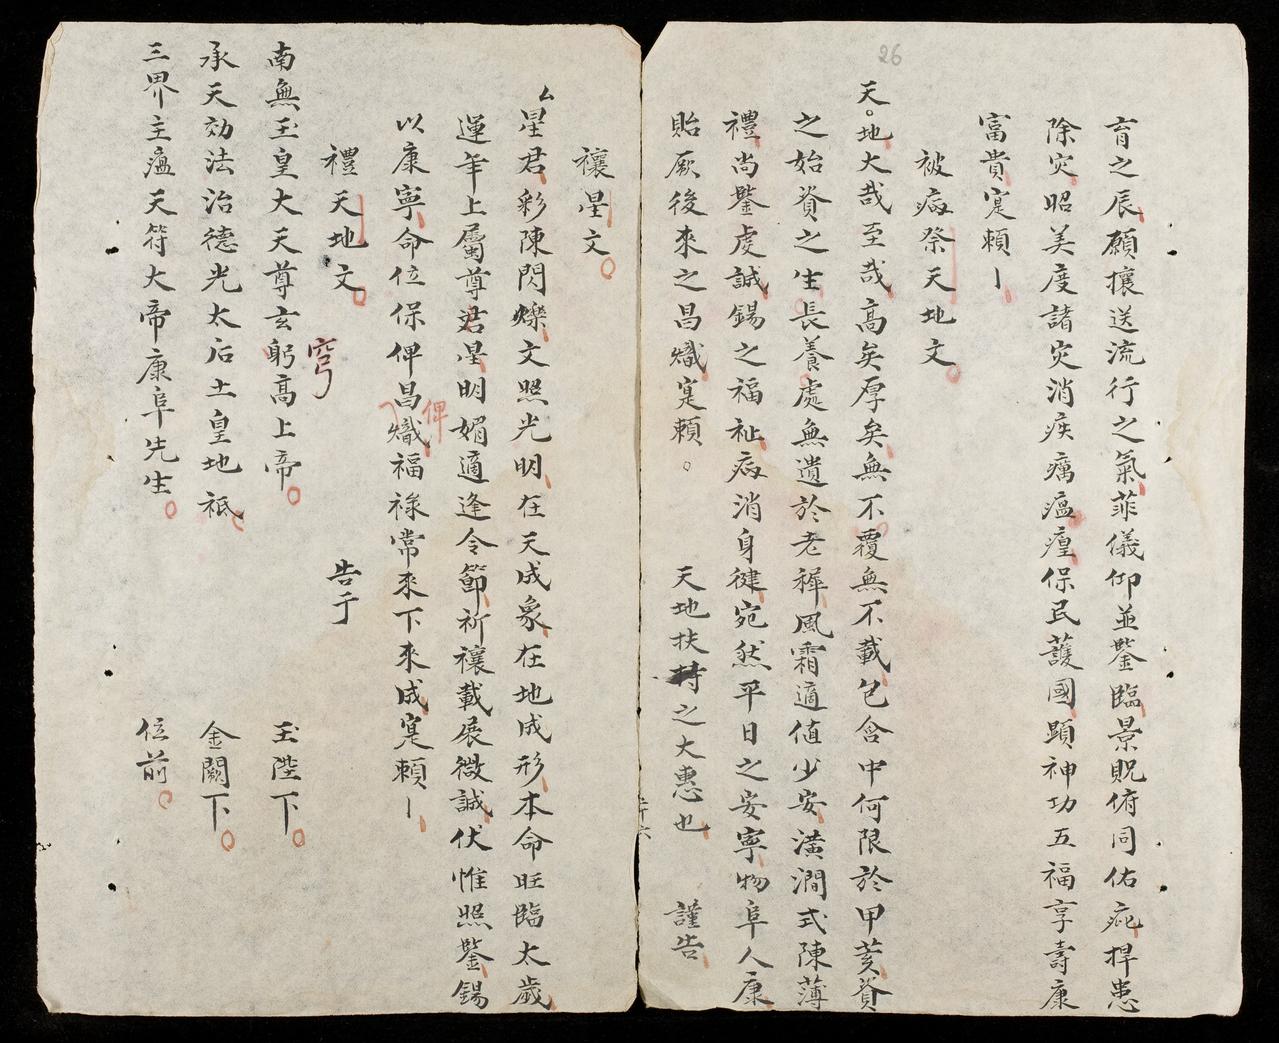 26
育之辰願攘送流行之氣菲儀仰並鑒臨景貺俯同佑庇捍患
除灾昭美度諸灾消疾癘瘟㾮保民護國顯神功五福享壽康
富貴寔頼〡
被病祭天地文
天地大哉至哉高矣厚矣無不覆無不載包含中何限於甲荄資
之始資之生長養處無遺於老穉風霜適值少安潢澗式陳薄
禮尚鑒虔誠錫之福祉病消身徤宛然平日之安寧物阜人康
貽厥後來之昌熾寔頼
天地扶持之大惠也 謹告
二十六
禳星文
星君彩陳閃爍文照光明在天成象在地成形本命旺臨太歲
運年上屬尊君星明媚適逢令節祈禳載展微誠伏惟照鑒錫
以康寧命位保俾昌熾福祿常來下來成寔頼〡
俾
禮天地文
告于
南無玉皇大天尊玄躬高上帝 玉陛下
穹
承天効法治德光太后土皇地祇 金闕下
三界主瘟天符大帝康阜先生 位前